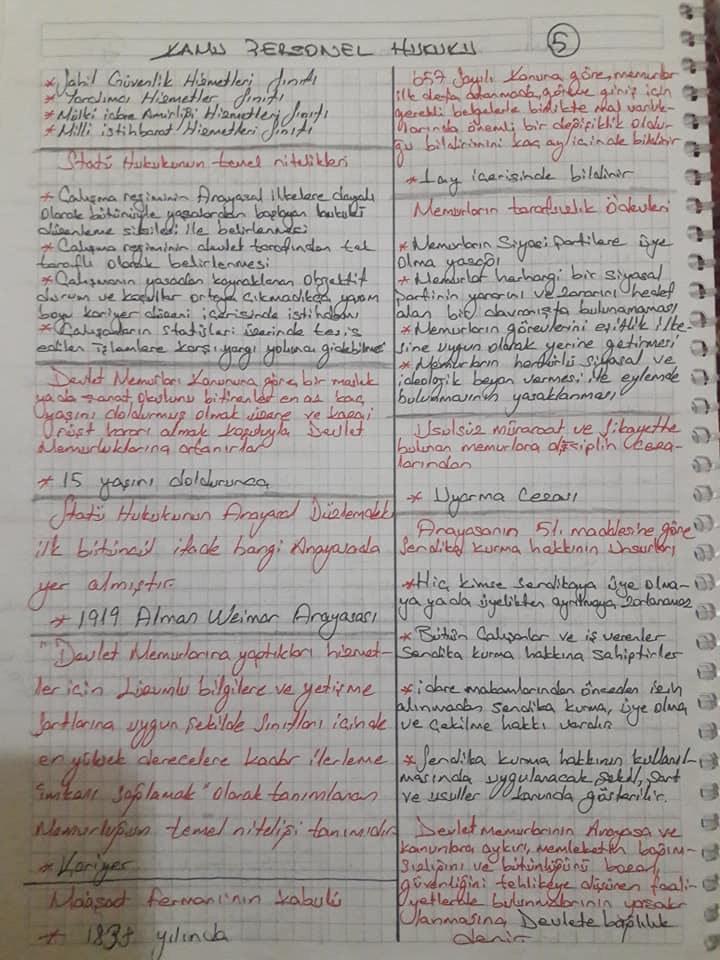 KAMU PERSONEL HUKUKU 5
* Sahil Güvenlik Hizmetleri Sınıfı
* Yardımcı Hizmetler Sınıfı
* Mülki idare Amirliği Hizmetleri Sınıfı
* Milli istihbarat Hizmetleri Sınıfı
Statü Hukukunun temel nitelikleri
* Çalışma rejiminin Anayasal ilkelere dayalı
olarak bütünüyle yasalardan başlayan hukuki
düzenleme silsilesi ile belirlenmesi
* Çalışma rejiminin devlet tarafından tek
taraflı olarak belirlenmesi
* Çalışmanın yasadan kaynaklanan objektif
durum ve koşullar ortaya çıkmadıkça yaşam
boyu kariyer düzeni içerisinde istihdamı
* Çalışanların statüleri üzerinde tesis
edilen işlemlere karşı yargı yoluna gidebilme
Devlet Memurları Kanununa göre, bir meslek
yada sanat okulunu bitirenler en az kaç
yaşını doldurmuş olmak üzere ve kazai
rüşt kararı almak koşuluyla Devlet
Memurluklarına atanırlar
* 15 yaşını doldurunca
Statü Hukukunun Anayasal Düzlemdeki
ilk bütüncül ifade hangi Anayasada
yer almıştır.
* 1919 Alman Weimar Anayasası
"Devlet Memurlarına yaptıkları hizmet-
ler için Lüzumlu bilgilere ve yetişme
şartlarına uygun şekilde sınıfları içinde
en yüksek derecelere kadar ilerleme
imkanı sağlamak" olarak tanımlanan
Memurluğun temel niteliği tanımıdır
* Kariyer
Maaşat fermanı'nın kabulü
* 1838 yılında
657 Sayılı Kanuna göre, memurlar
ilk defa atanmada, göreve giriş için
gerekli belgelerle birlikte mal varlık-
larında önemli bir değişiklik oldu-
ğu bildirimini kaç ay içinde bildirir
* 1 ay içerisinde bildirir
Memurların tarafsızlık Ödevleri
* Memurların Siyasi Partilere üye
olma yasağı
* Memurlar herhangi bir siyasal
partinin yararını ve zararını hedef
alan bir davranışta bulunamaması
* Memurların görevlerini eşitlik ilke-
sine uygun olarak yerine getirmesi
* Memurların hertürlü siyasal ve
ideolojik beyan vermesi, ve eylemde
bulunmasının yasaklanması
Usulsüz müracaat ve şikayette
bulunan memurlara disiplin Ceza-
larından
* Uyarma Cezası
Anayasanın 51. maddesine göre
Sendika kurma hakkının Unsurları
* Hiç kimse Sendikaya üye olma-
ya yada üyelikten ayrılmaya zorlanamaz
* Bütün Çalışanlar ve iş verenler
Sendika kurma hakkına sahiptirler
* idare makamlarından önceden izin
alınmadan sendika kurma, üye olma
ve çekilme hakkı vardır
* Sendika kurma hakkının kullanıl-
masında uygulanacak şekil, şart
ve usuller kanunda gösterilir.
Devlet memurlarının Anayasa ve
kanunlara aykırı, memleketin bağım-
sızlığını ve bütünlüğünü bozan,
güvenliğini tehlikeye düşüren faali-
yetlerde bulunmalarının yasak-
lanmasına, Devlete bağlılık
denir